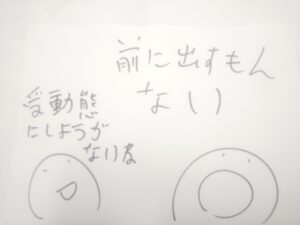 前に出すもん
ない
受動態
にしようが
ないな